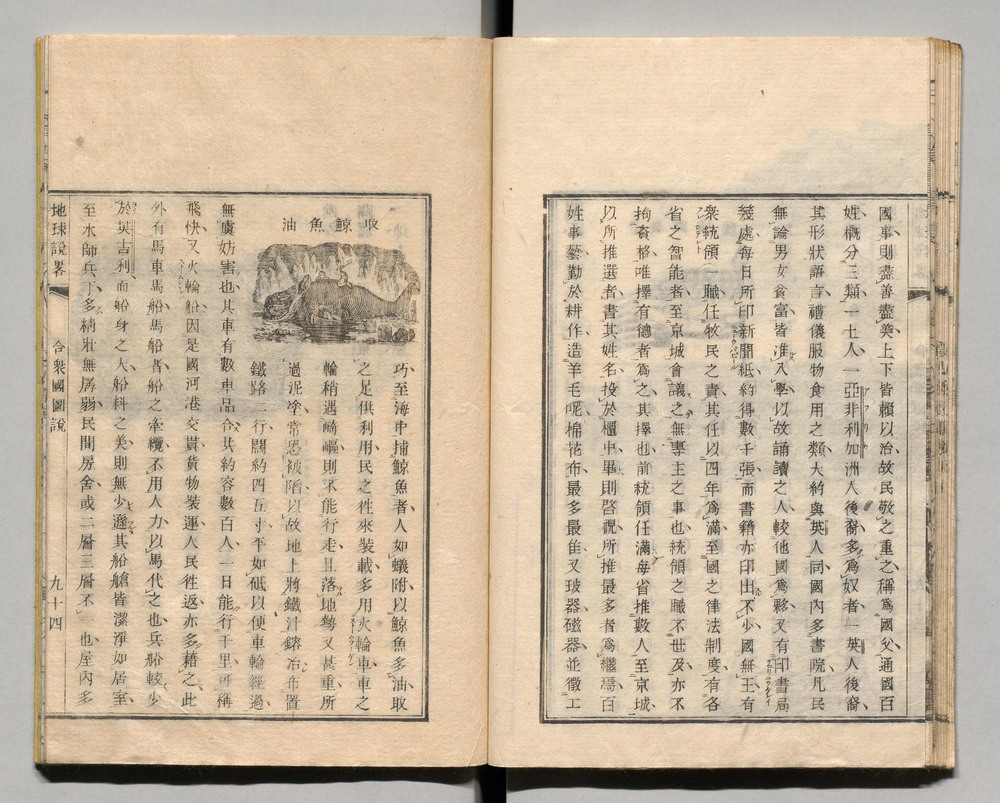 國事則盡善盡美上下皆賴以治故民敬之重之稱爲國父通國百
姓概分三類一士人一亞非利加洲人後裔多爲奴者一英人後裔
其形狀語言禮儀服物食用之類大約與英人同國內多書院凡民
無論男女貧富皆准入學以故誦讀之人較他國爲夥又有印書局
幾處每日所印新聞紙約得數千張而書籍亦印出不少國無王有
衆統領一職任牧民之責其任以四年爲滿至國之律法制度有各
省之智能者至京城會議之無專主之事也統領之職不世及亦不
拘資格唯擇有德者爲之其擇也前統領任滿每省推數人至京城
以所推選者書其姓名投於櫃中畢則啓視所推最多者爲繼焉百
姓事藝勤於耕作造羊毛呢棉花布最多最佳又玻器磁器並徵工
取鯨魚油
巧至海中捕鯨魚者人如蟻附以鯨魚多油取
之足供利用民之往來裝載多用火輪車車之
輪稍遇崎嶇則不能行走且落地勢又甚重所
過泥塗常恐被陷以故地上將鐵汁鎔冶布置
鐵路二行闊約四五寸平如砥以便車輪經過
無虞妨害也其車有數車品合共約容數百人一日能行千里可稱
飛快又火輪船因是國河港交貫貨物裝運人民往返亦多藉之此
外有馬車馬船馬船者船之牽纜不用人力以馬代之也兵船較少
於英吉利而船身之大船料之美則無少遜其船艙皆潔淨如居室
至水師兵丁多納壯無孱弱民間房舍或二層三層不 也屋內多
地球說畧 合衆國圖說 九十四